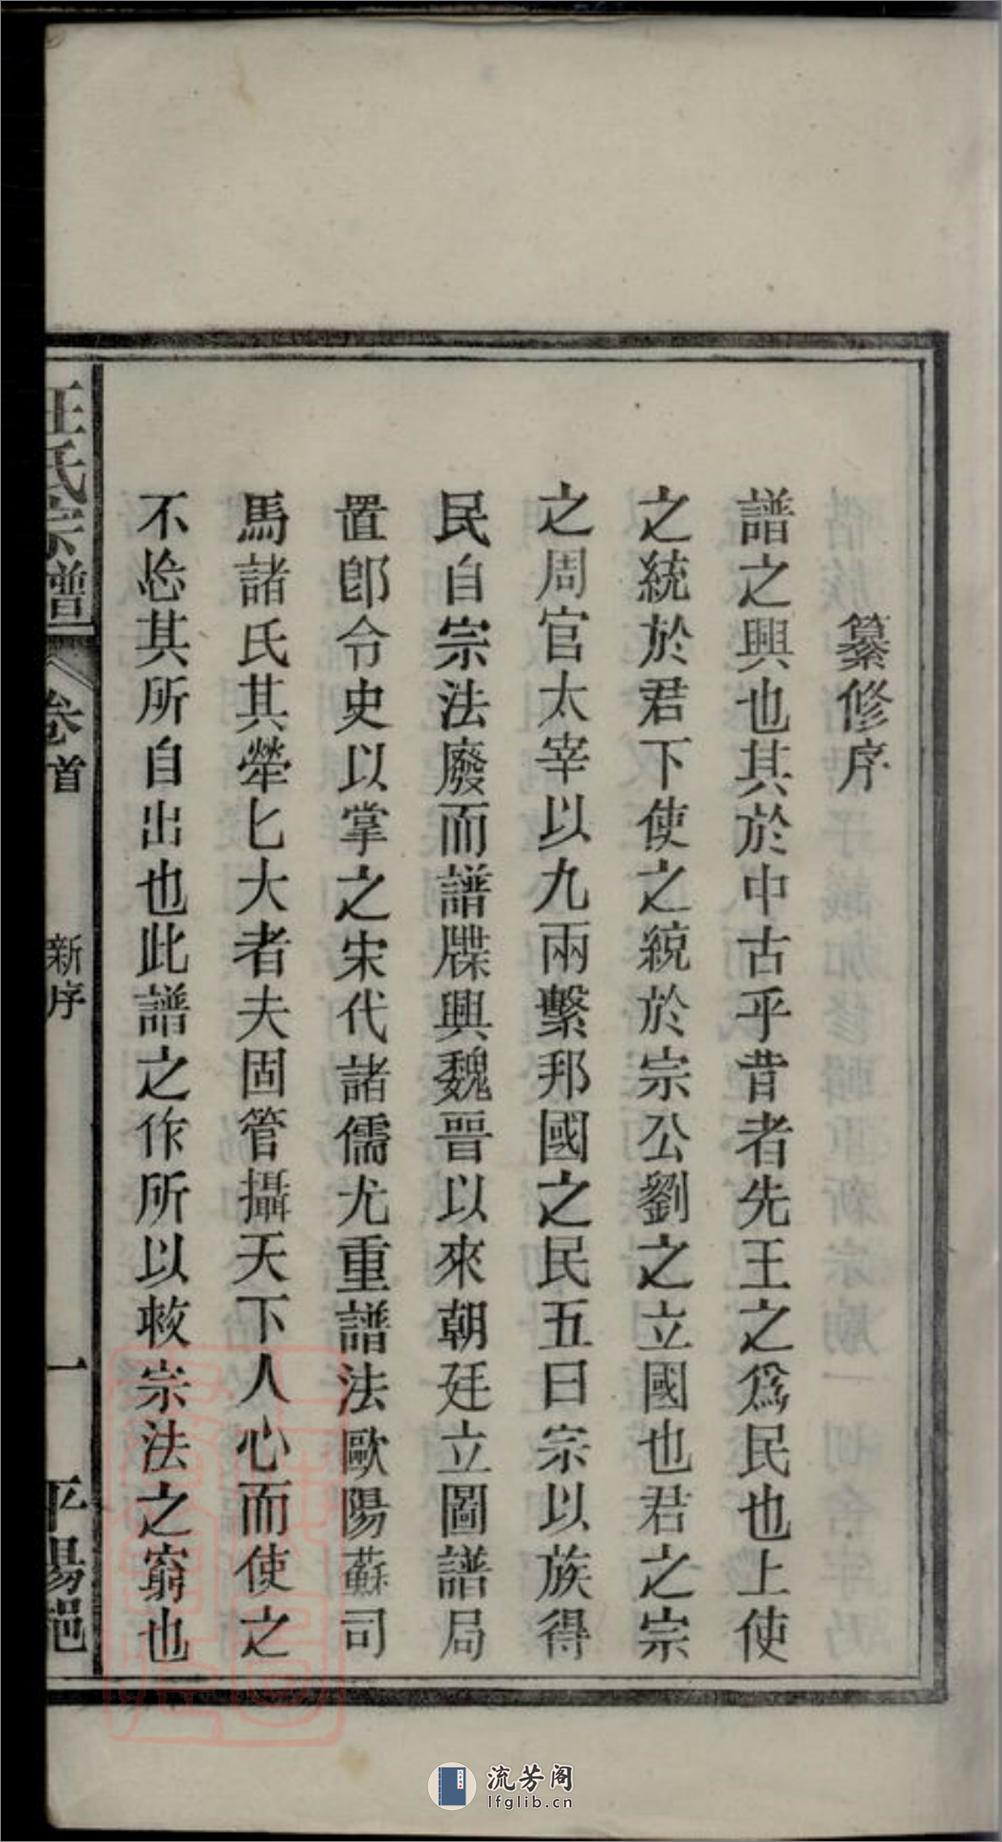 纂修序
譜之興也其於中古乎昔者先王之爲民也上使
之統於君下使之統於宗公劉之立國也君之宗
之周官太宰以九兩繫邦國之民五曰宗以族得
民自宗法廢而譜牒興魏晉以來朝廷立圖譜局
置郎令史以掌之宋代諸儒尤重譜法歐陽蘇司
馬諸氏其犖匕大者夫固管攝天下人心而使之
不忘其所自出也此譜之作所以救宗法之窮也
汪氏宗譜
卷首
新序
一
平陽
流芳阁
lfglib.cn